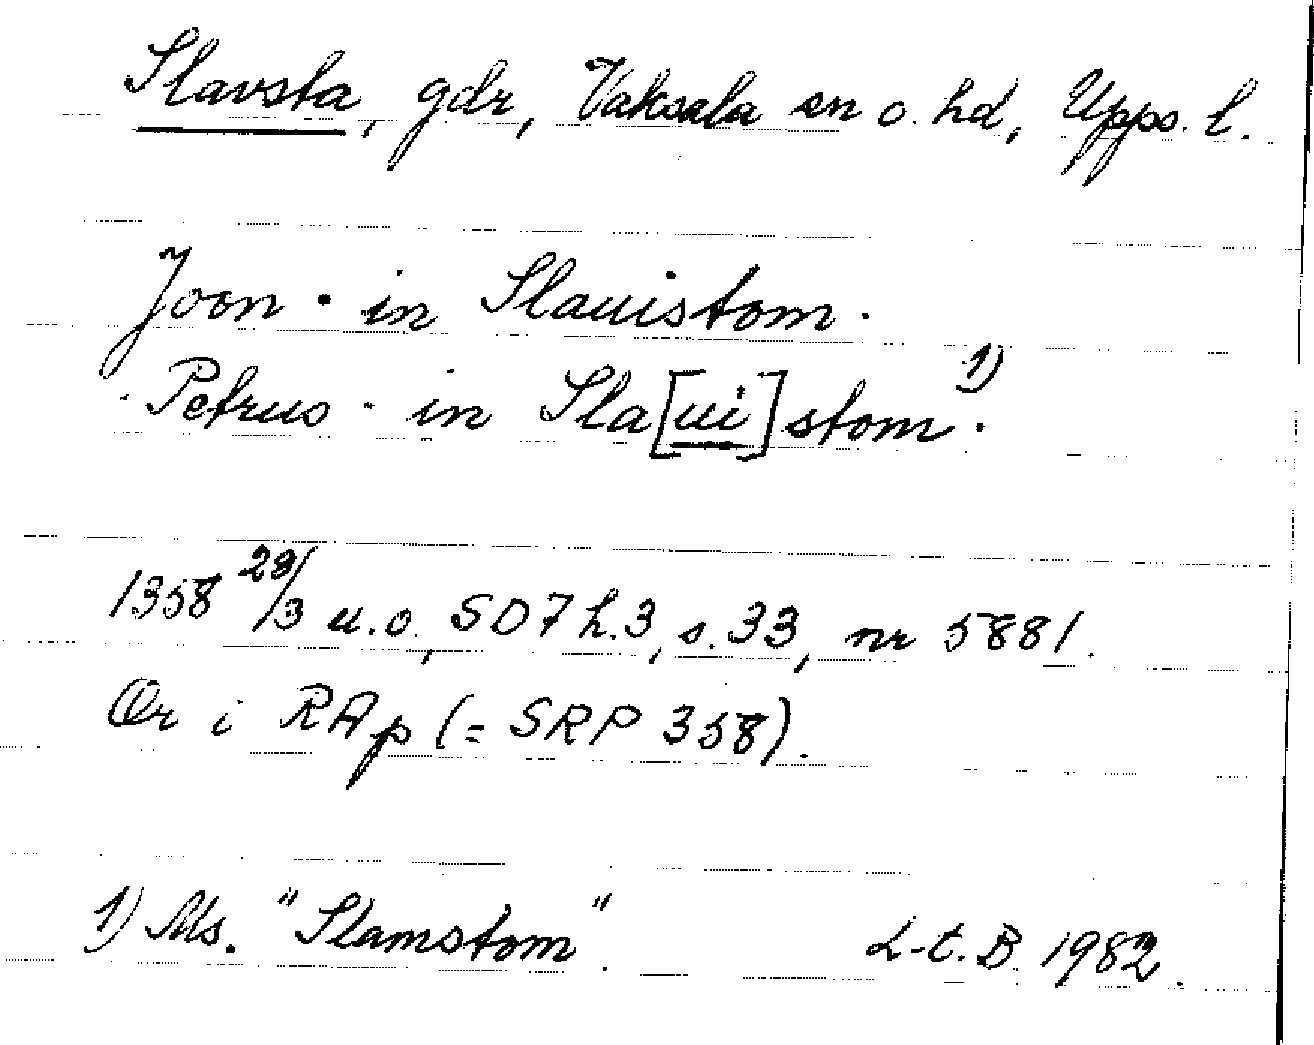 Slavsta, gdr, Vaksala sn o. hd, Upps. l.
Joon · in Slauistom.
· Petrus · in Sla[ui]stom 1).
1358 29/3 u.o., SD7 h.3, s. 33, nr 5881.
Or i RAp (= SRP 358).
1) Ms. "Slamstom". L-t. B. 1982.